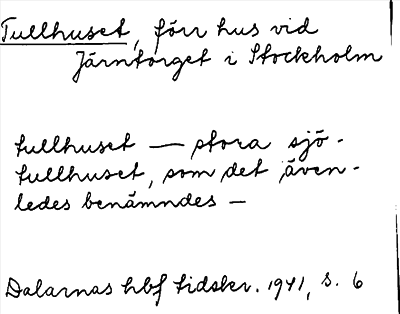 Tullhuset, förr hus vid
Järntorget i Stockholm
tullhuset — stora sjö-
tullhuset, som det även-
ledes benämndes —
Dalarnas hbf tidskr. 1941, s. 6